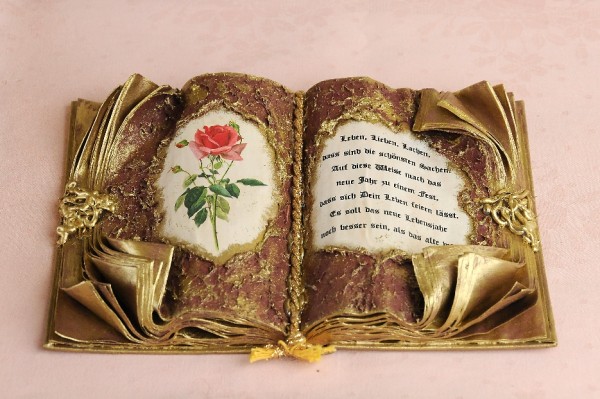 Leben, Lieben, Lachen,
dass sind die schönsten Sachen.
Auf diese Weise mach das
neue Jahr zu einem Fest,
dass sich Dein Leben feiern lässt.
Es soll das neue Lebensjahr
noch besser sein, als das alte